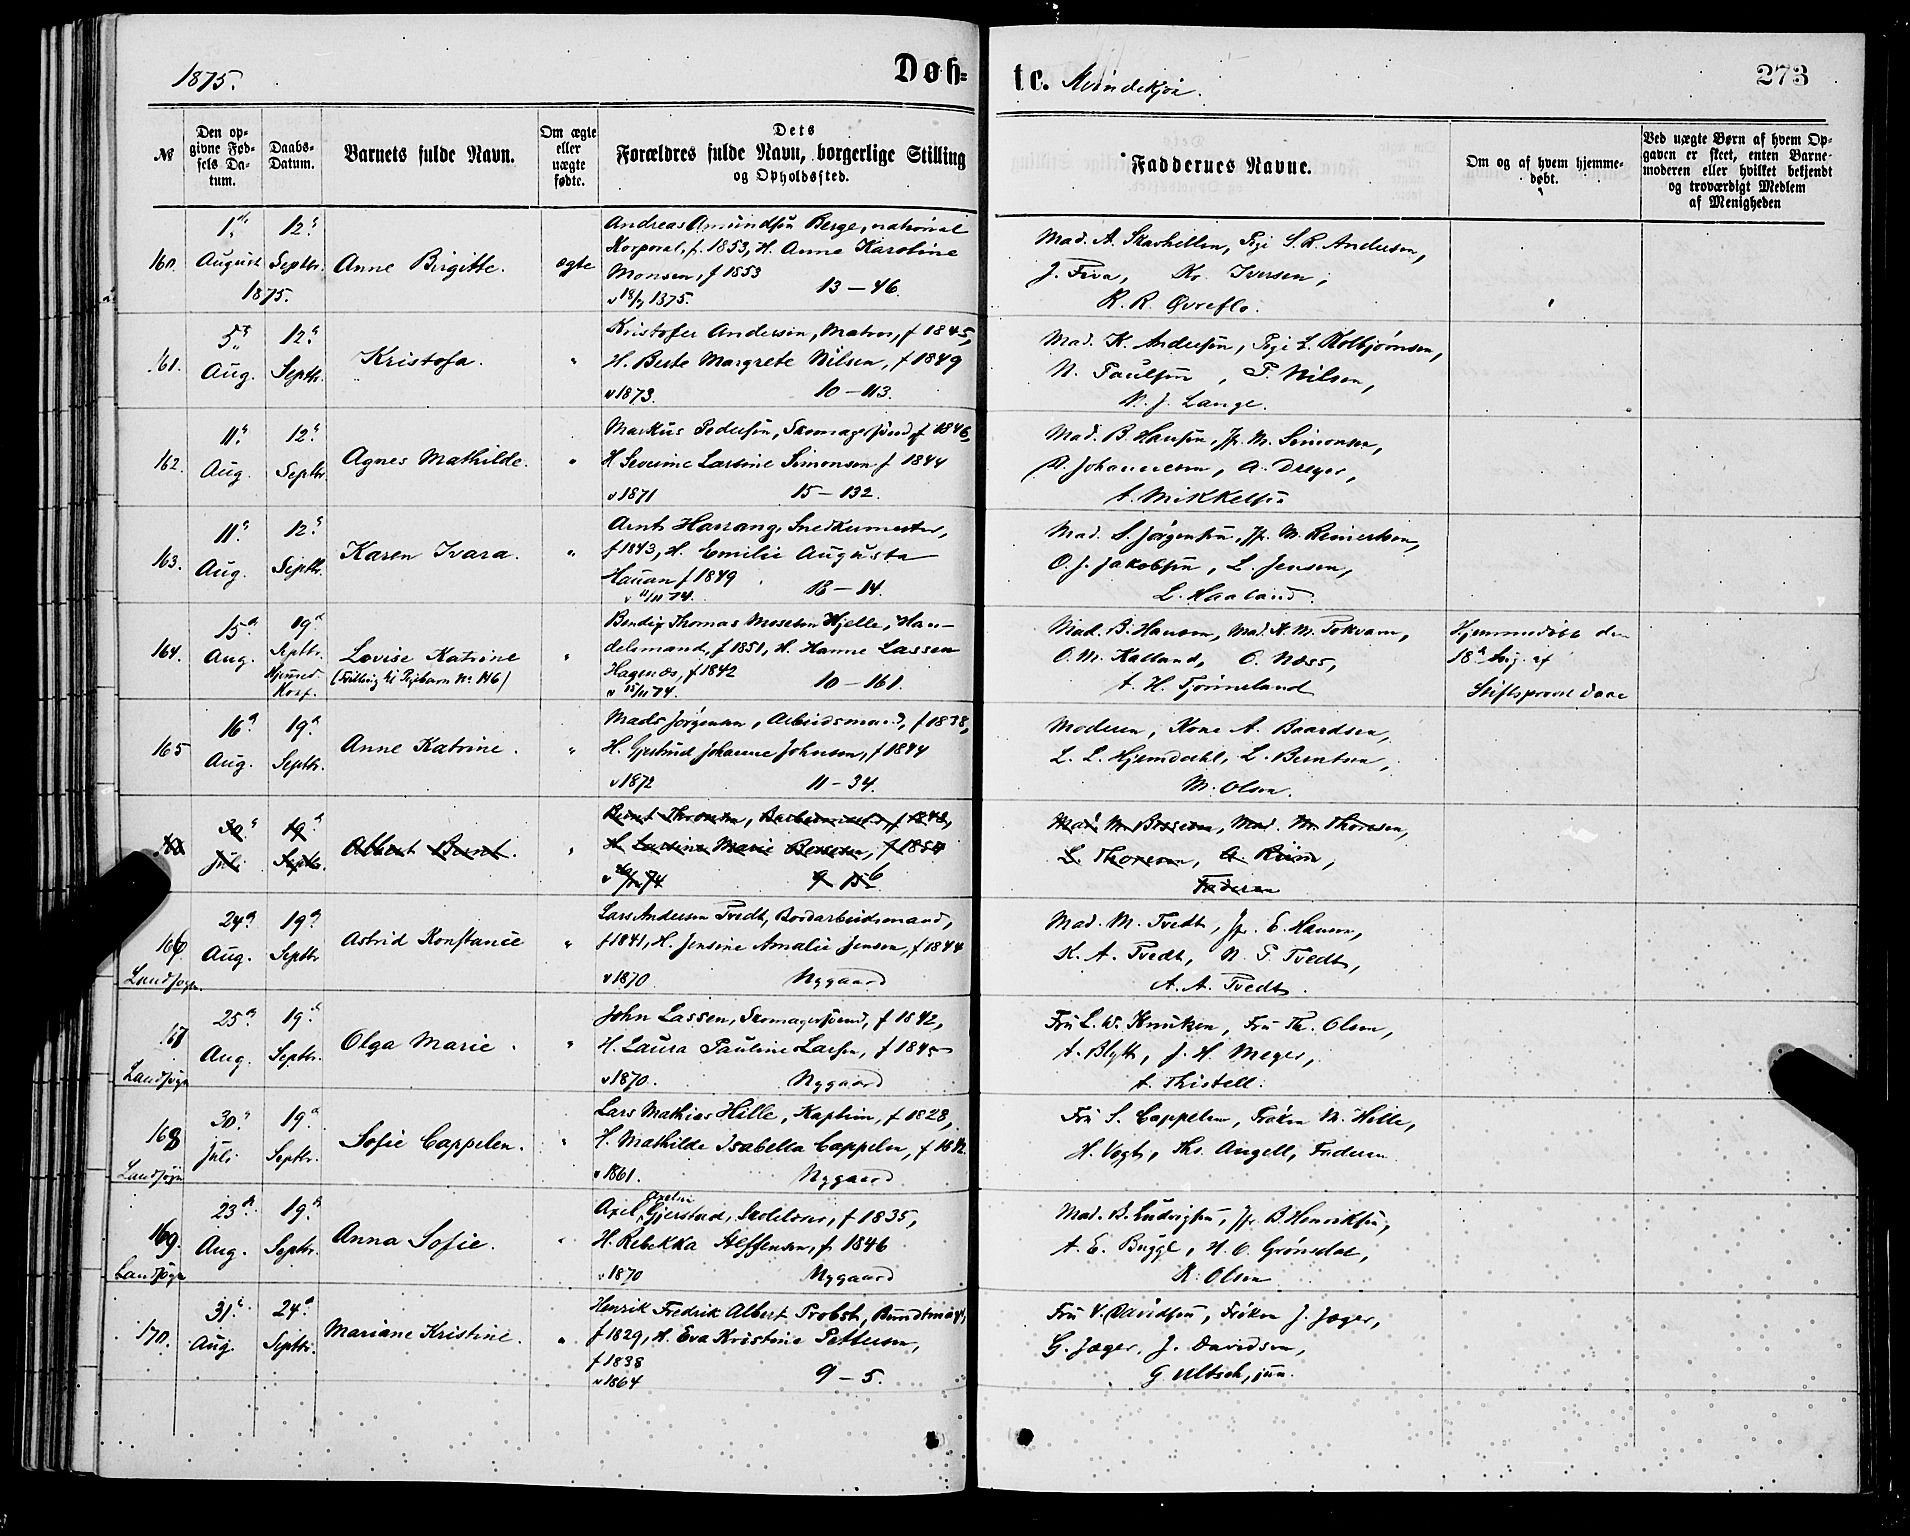 1875.
Døb-
te. Kvindekjøn.
273
№
Den op-
givne Fød-
sels Da-
tum.
Daabs-
Datum.
Barnets fulde Navn.
Om ægte
eller
uægte
fødte.
Dets
Forældres fulde Navn, borgerlige Stilling
og Opholdssted.
Faddernes Navne.
Om og af hvem hjemme-
døbt.
Ved uægte Børn af hvem Op-
gaven er skeet, enten Barne-
moderen eller hvilket bekjendt
og troværdigt Medlem
af Menigheden
160.
1ste
August
1875.
12te
Septbr.
Anne Birgitte.
ægte
Andreas Amundsen Berge, national
Korporal, f. 1853, H. Anne Karoline
Monsen, f 1853
v 18/7 1875. 13 – 46.
Mad. A. Skarhellen, Pige S. R. Andersen,
J. Fiva, Kr. Iversen,
R. R. Øvreflo.
161.
5te
Aug.
12te
Septbr.
Kristofa.
"
Kristofer Andersen, Matros, f 1845,
H. Berte Margrete Nilsen, f 1849
v 1873. 10 – 113.
Mad. K. Andersen, Pige L. Kolbjørnsen,
N. Paulsen, P. Nilsen,
N. J. Lange.
162.
11te
Aug.
12te
Septbr.
Agnes Mathilde.
"
Markus Pedersen, Skomagersvend f 1846,
H Severine Larsine Simonsen f 1844
v 1871 15 – 132.
Mad. B. Hansen, Jfr. M. Simonsen,
P. Johannesen, A. Dreyer,
A. Mikkelsen
163.
11te
Aug.
12te
Septbr.
Karen Ivara.
"
Arnt Harrang, Snedkermester,
f 1843, H. Emilie Augusta
Hauan f 1849
v 11/11 74. 18 – 14.
Mad. S. Jørgensen, Jfr. M. Reinertsen,
O. J. Jakobsen, L. Jensen,
L. Haaland.
164.
15de
Aug.
19de
Septbr.
Hjemmed.
Korf.
Lovise Katrine
(Tvilling til Pigebarn No 146)
"
Bendix Thomas Mosesen Hjelle, Han-
delsmand, f 1851, H. Hanne Lassen
Hagenæs, f 1842
v 15/11 74. 10 – 161.
Mad. B. Hansen, Mad. K. M. Tokvam,
O. M. Kalland, O. Næss,
A. H. Tjønneland
Hjemmedøbt den
18de Aug. af
Stiftsprovst Daae
165
16de
Aug.
19de
Septbr.
Anne Katrine.
"
Mads Jørgensen, Arbeidsmand, f 1838,
H. Gjertrud Johanne Johnsen, f 1844
v 1872 11 – 34.
Moderen, Kone A. Baardsen,
L. L. Hjemdahl, L. Berntsen,
M. Olsen.
30te
Juli
19de
Septbr.
Albert Bernt.
"
Bernt Thoresen, f 1848,
H. Larsine Marie f 1854
9 156
Mad. M. Mad. M. Thoresen,
L. Thoresen,
Faderen
166
Landsogn.
24de
Aug.
19de
Septbr
Astrid Konstanse
"
Lars Andersen Tvedt, Bordarbeidsmand,
f 1841, H. Jensine Amalie Jensen, f 1844
v 1870 Nygaard
Mad. M. Tvedt, Jfr. E. Hansen,
K. A. Tvedt, N. P. Tvedt,
A. A. Tvedt.
167
Landsogn
25de
Aug.
19de
Septbr.
Olga Marie.
"
John Lassen, Skomagersvend, f 1842,
H. Laura Pauline Larsen, f 1845
v 1870. Nygaard
Fru L. W. Knudsen, Fru Th. Olsen,
A. Blytt, J. H. Meyer,
A. Thistell.
168
Landsogn
30te
Juli
19de
Septbr.
Sofie Cappelen.
"
Lars Mathias Hille, Kaptein, f 1828,
H. Mathilde Isabella Cappelen, f 1842.
v 1861. Nygaard
Fru S. Cappelen, Frøken M. Hille,
H. Vogt, Ths. Angell, Faderen
169.
Landsogn
23de
Aug.
19de
Septbr.
Anna Sofie.
"
Axelsen
Axel Gjerstad, Skolelærer, f 1835,
H. Rebekka Steffensen, f. 1846
v 1870 Nygaard
Mad. B. Ludvigsen, Jfr. B. Henriksen,
A. E. Bugge, H. O. Grønsdal,
R. Olsen
170.
31te
Aug.
24de
Septbr.
Mariane Kristine.
"
Henrik Fredrik Albert Probst, Bundtmager,
f 1829, H. Eva Kristine Pettersen,
f 1838
v 1864 9 – 5.
Fru V. Davidsen, Frøken J. Jæger,
G. Jæger, J. Davidsen,
G. Ultsch, jun.